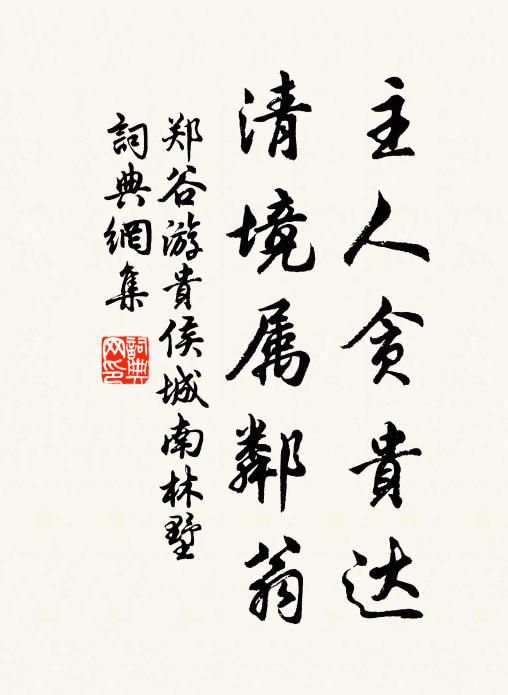 主人贪貴达
清境属鄰翁
郑谷游貴侯城南林墅
詞典網集
詞典網印